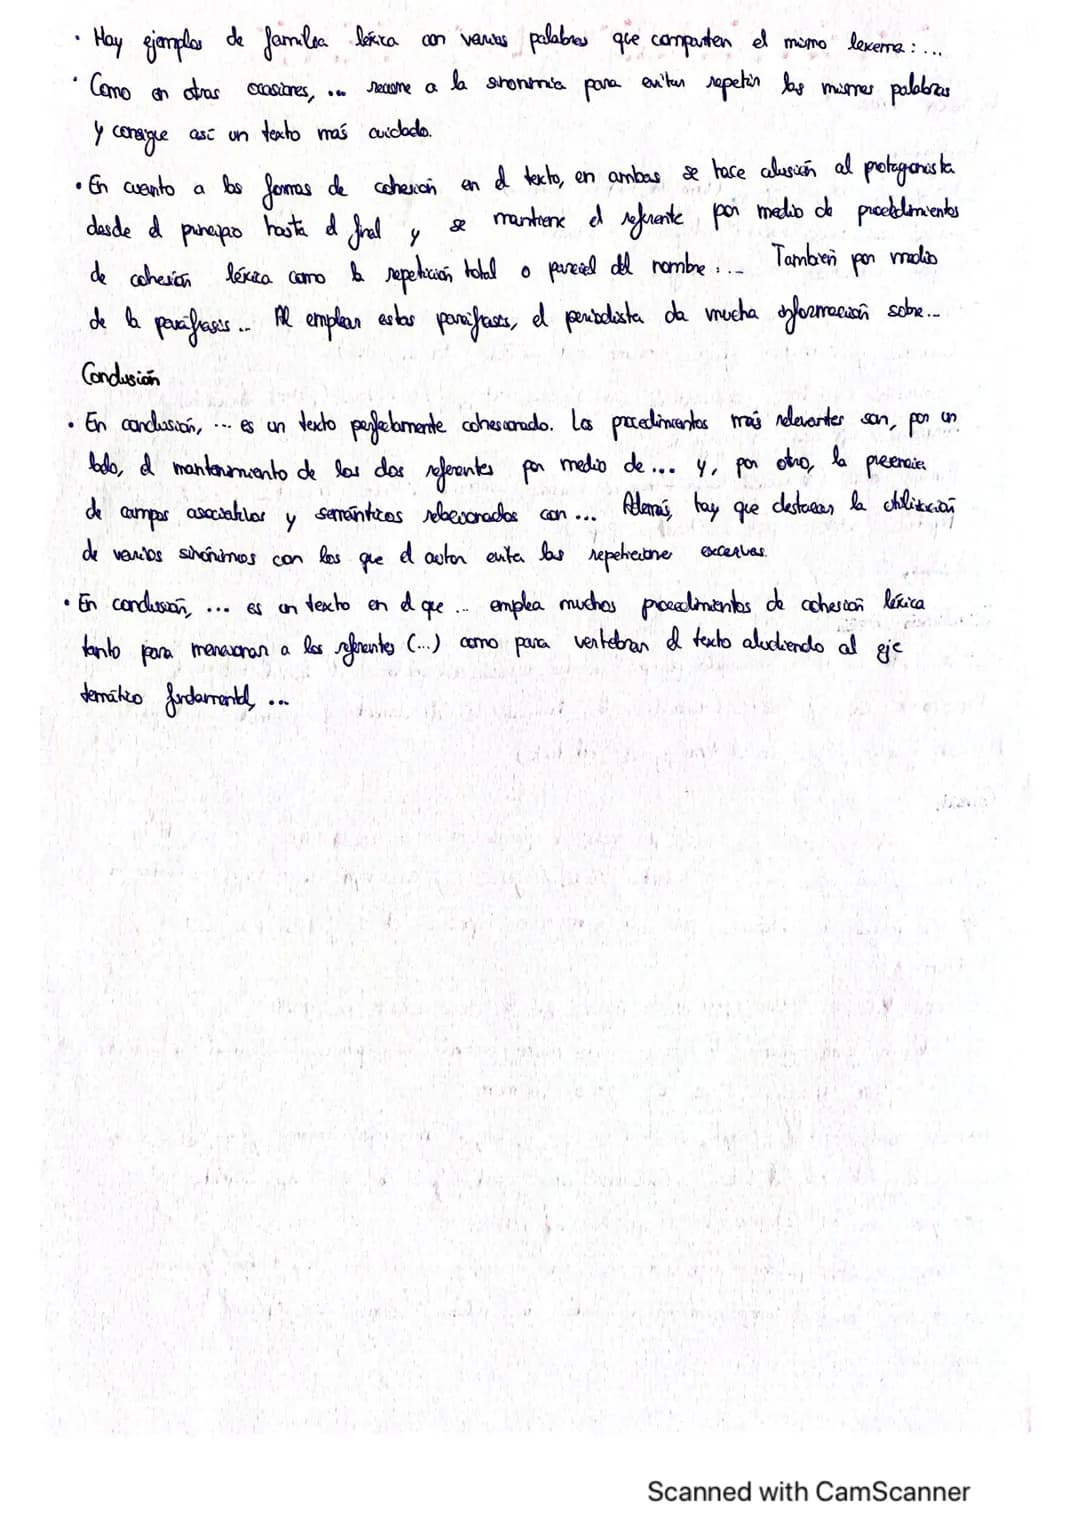 · Hay ejemplos de familia léxica con varias palabras que comparten el mismo lexema: ...
· Como en otras ocasiones, ... recurre a la sinonimia para evitar repetir las mismas palabras
y consigue así un texto más cuidado.
· En cuanto a las formas de cohesión en el texto, en ambas se hace alusión al protagonista
desde el principio hasta el final y se mantiene el referente por medio de procedimientos
de cohesión léxica como la repetición total o parcial del nombre: ... También por medio
de la paráfrasis ... Al emplear estas paráfrasis, el periodista da mucha información sobre ...
Conclusión
· En conclusión, ... es un texto perfectamente cohesionado. Los procedimientos más relevantes son, por un
lado, el mantenimiento de los dos referentes por medio de ... y, por otro, la presencia
de campos asociativos y semánticos relacionados con ... Además, hay que destacar la utilización
de varios sinónimos con los que el autor evita las repeticiones excesivas.
· En conclusión, ... es un texto en el que ... emplea muchos procedimientos de cohesión léxica
tanto para mencionar a los referentes (...) como para vertebrar el texto aludiendo al eje
temático fundamental, ...
Scanned with CamScanner